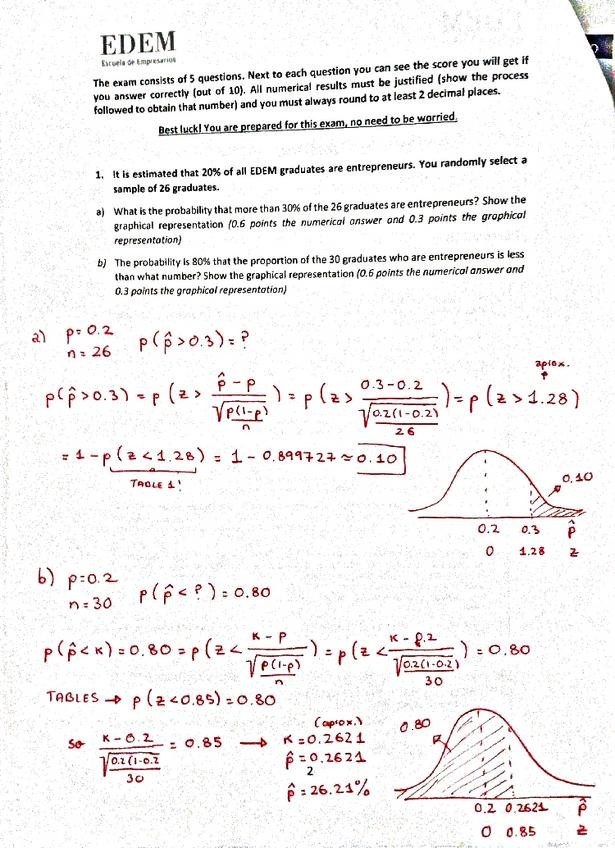 EDEM
Escuela de Empresarios
The exam consists of 5 questions. Next to each question you can see the score you will get if
you answer correctly (out of 10). All numerical results must be justified (show the process
followed to obtain that number) and you must always round to at least 2 decimal places.
Best luck! You are prepared for this exam, no need to be worried.
1. It is estimated that 20% of all EDEM graduates are entrepreneurs. You randomly select a
sample of 26 graduates.
a) What is the probability that more than 30% of the 26 graduates are entrepreneurs? Show the
graphical representation (0.6 points the numerical answer and 0.3 points the graphical
representation)
b) The probability is 80% that the proportion of the 30 graduates who are entrepreneurs is less
than what number? Show the graphical representation (0.6 points the numerical answer and
0.3 points the graphical representation)
a) p=0.2
n=26
p(p̂>0.3)=?
aprox.
p(p̂>0.3) = p(z > (p̂-p)/√(p(1-p)/n)) = p(z > (0.3-0.2)/√(0.2(1-0.2)/26)) = p(z > 1.28)
= 1-p(z<1.28) = 1-0.899727 ≈ 0.10
TABLE 1!
0.10
0.2 0.3 p̂
0 1.28 z
b) p=0.2
n=30
p(p̂<?)=0.80
p(p̂<K)=0.80=p(z < (K-p)/√(p(1-p)/n)) = p(z < (K-0.2)/√(0.2(1-0.2)/30)) = 0.80
TABLES → p(z<0.85)=0.80
so (K-0.2)/√(0.2(1-0.2/30) = 0.85 →
(aprox.)
K=0.2621
p̂=0.2621
2
p̂=26.21%
0.80
0.2 0.2621 p̂
0 0.85 z